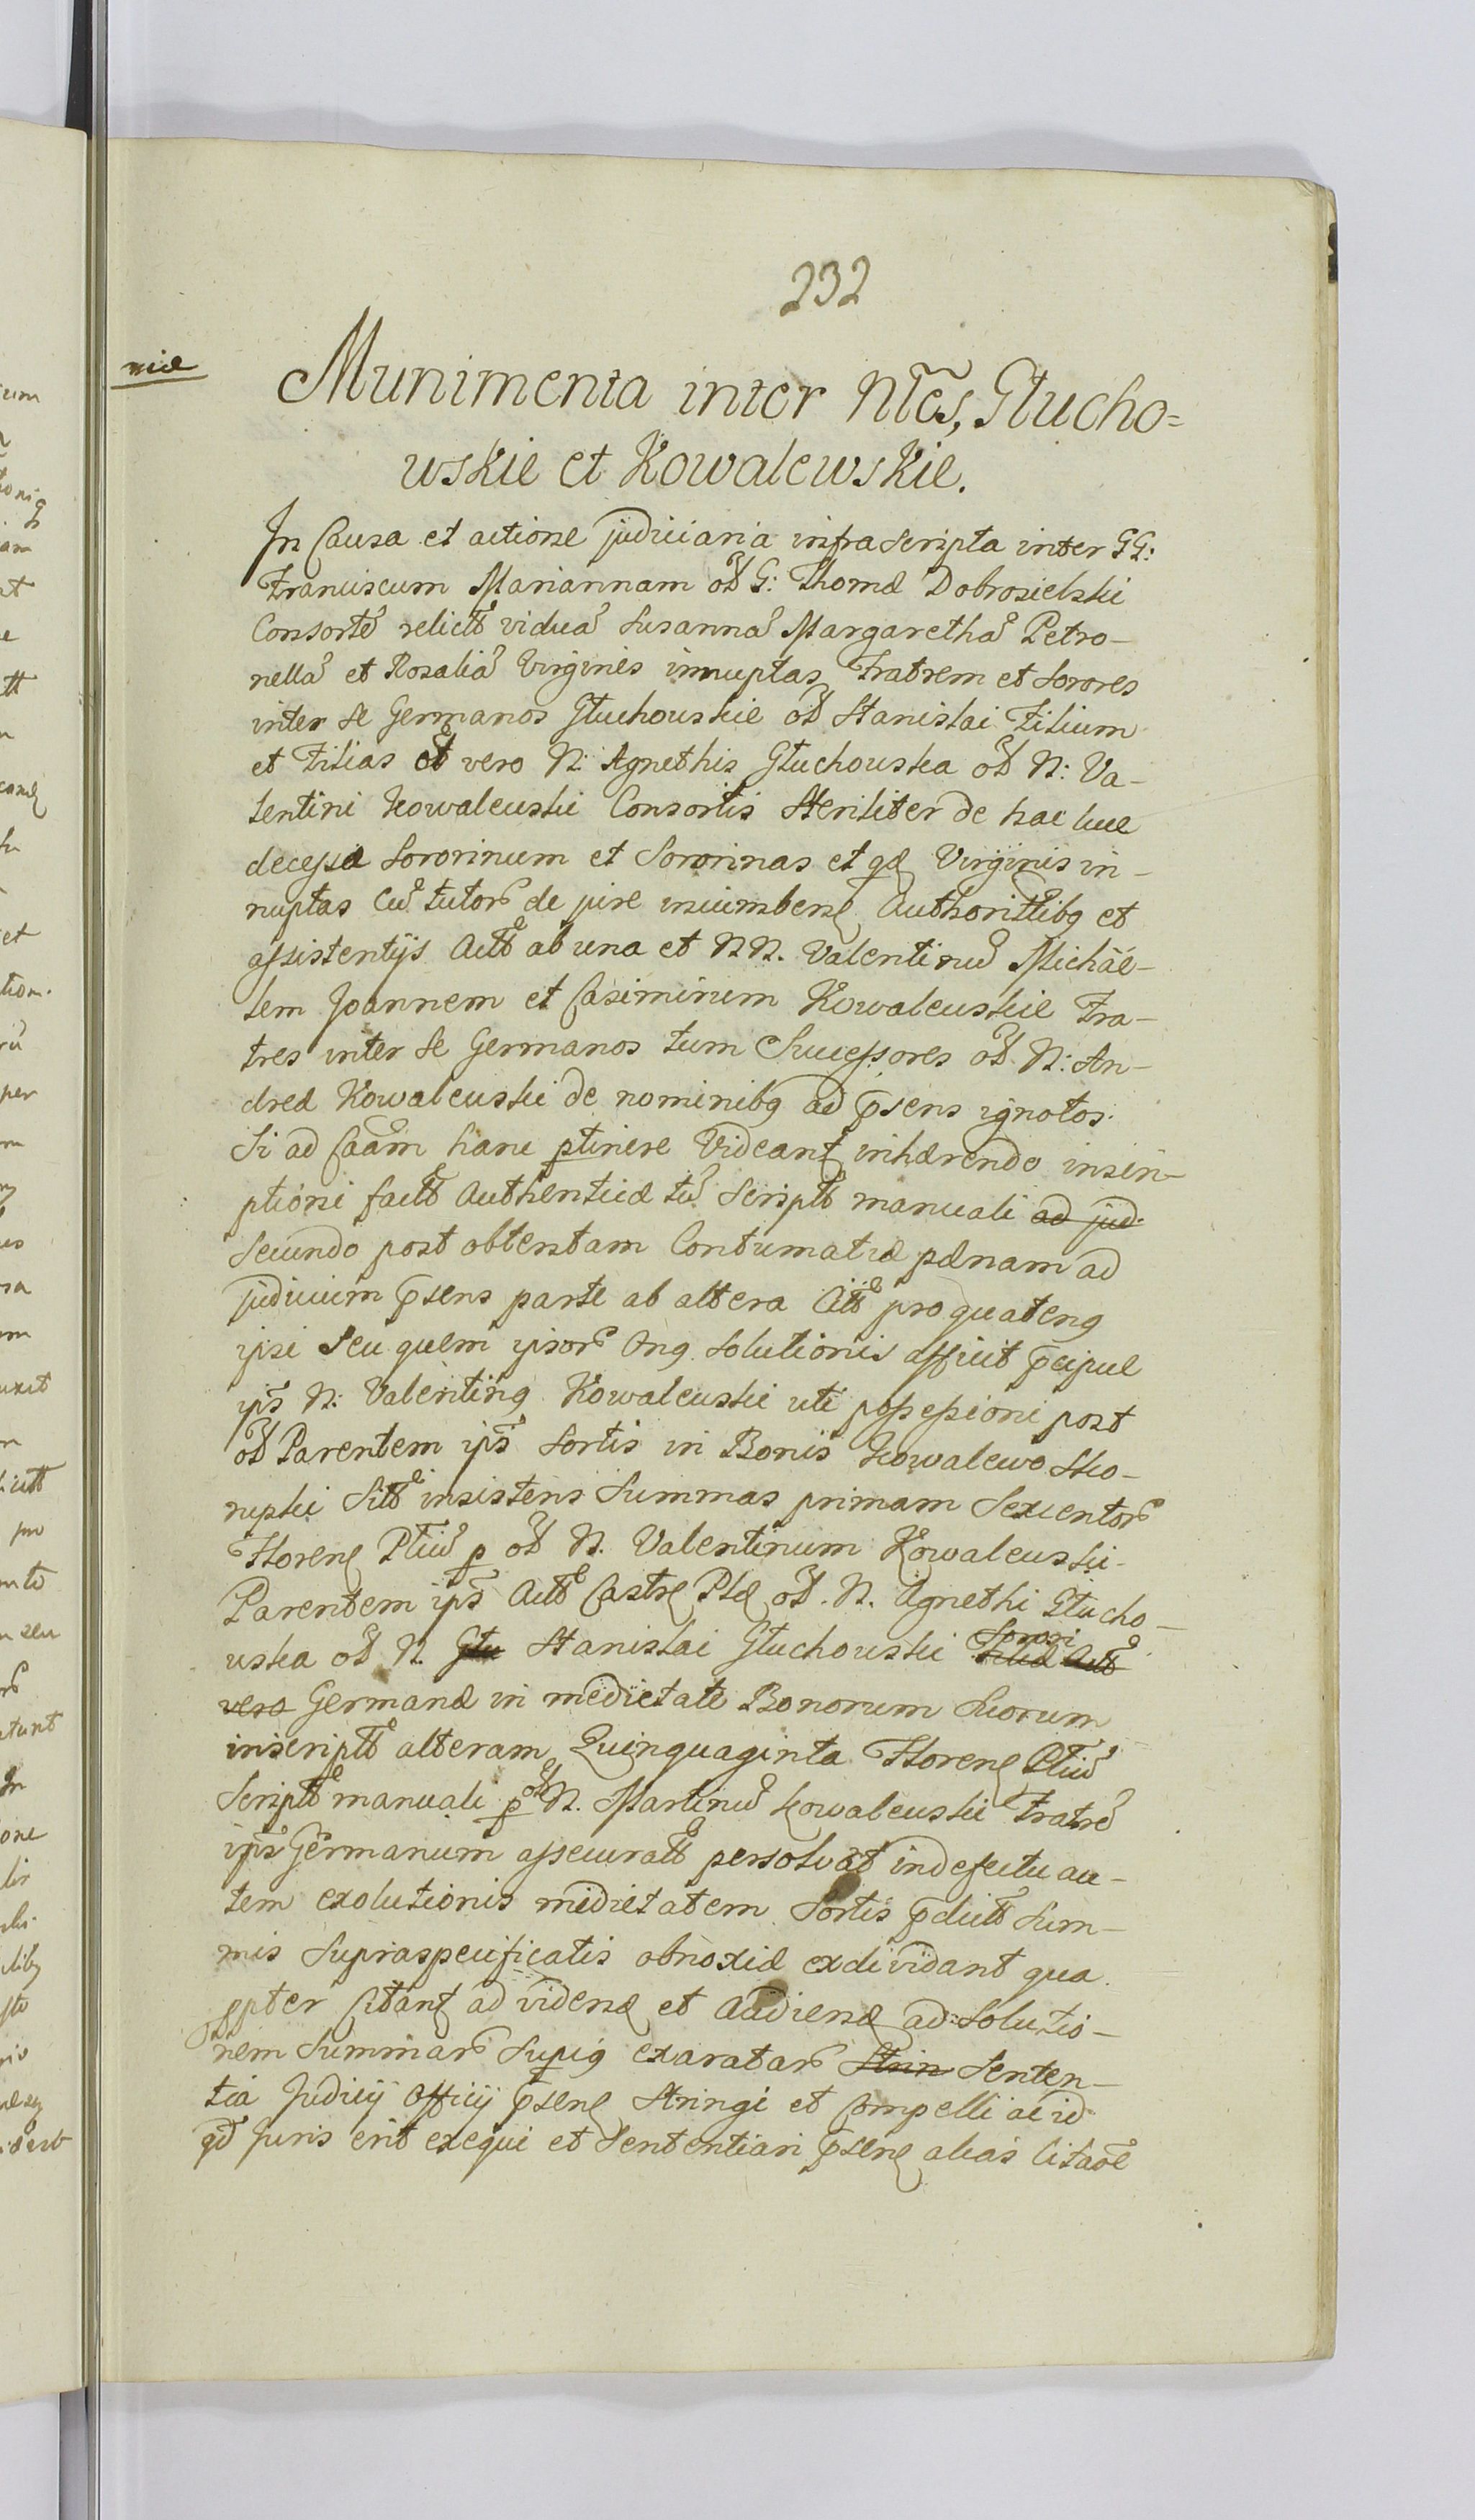 232
niæ
Munimenta inter Nles, Głucho=
wskie et Kowalewskie.
In Causa et actione judiciaria infra scripta inter GG:
Franciscum Mariannam oł G: Thomæ Dobrosielski
Consorte relictt vidua Susanna Margaretha Petro-
nella et Rosalia Virgines innuptas Fratrem et Sorores
inter se Germanos Głuchowskie oł Stanislai Filium
et Filias vero N: Agnethis Głuchowska oł N: Va-
lentini Kowalewski Consortis Steriliter de hac luce
decessæ Sororinum et Sororinas et qd Virginis in-
nuptas Cu tutor de jure incumben Authorittibq et
assistentijs Actt ab una et NN. Valentinu Michaë-
lem Joannem et Casimirum Kowalewskie Fra-
tres inter se Germanos tum Successores oł N: An-
dreæ Kowalewski de nominibq ad psens ignotos.
Si ad Caam hanc ptinere Videant inhærendo inscri-
ptioni factt Authenticæ tu Scriptt manuali ad jud.
Secundo post obtentam Contumatiæ pænam ad
judicium psens parte ab altera Citt pro quatenq
ipsi seu quem ipsor Onq solutionis afficit pcipue
ips N: Valentinq Kowalewski uti possessioni post
oł Parentem ips Sortis in Bonis Kowalewo Sko-
rupki Sitt insistens Summas primam Sexcentor
Floren Pliu p oł N. Valentinum Kowalewski
Parentem ips Actt Castr Plæ oł. N. Agnethi Głucho-
wska oł N. Głu Stanislai Głuchowski Sorori Filiæ Actt
vero Germanæ in medietate Bonorum Suorum
inscriptt alteram Quinquaginta Floren Pliu
Scriptt manuali p oł N. Martinu Kowalewski Fratre
ips Germanum assecuratt persolvat in defectu au-
tem exolutionis medietatem Sortis pdictt Sum-
mis Supraspecificatis obnoxiæ exdividant qua
ppter Citant ad viden et Audien ad Solutio-
nem Summar Supiq exaratar Strin Senten-
tia Judicij Officij psen Stringi et Compelli ac id
qd Juris erit exequi et Sententiari psen alias Citaoe